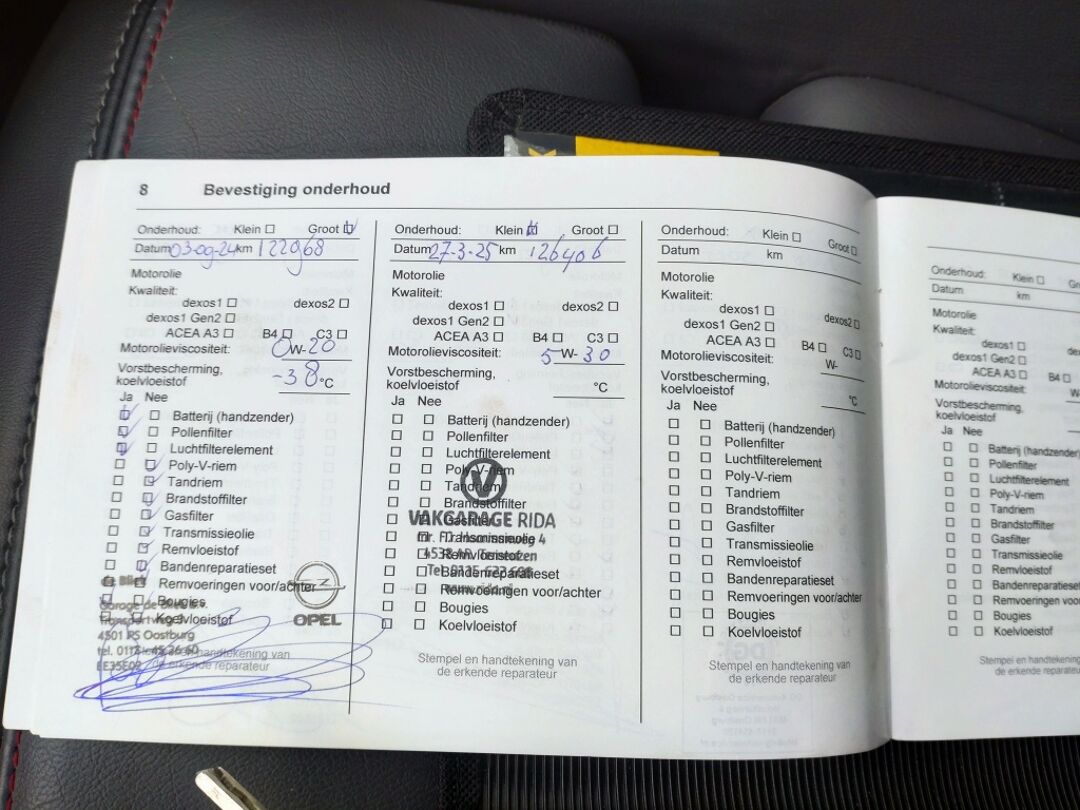 8 Bevestiging onderhoud
Onderhoud: Klein Groot
Datum 03-09-24 km 122968
Motorolie
Kwaliteit:
dexos1 dexos2
dexos1 Gen2
ACEA A3 B4 C3
Motorolieviscositeit: 0 W- 20
Vorstbescherming,
koelvloeistof -38 °C
Ja Nee
Batterij (handzender)
Pollenfilter
Luchtfilterelement
Poly-V-riem
Tandriem
Brandstoffilter
Gasfilter
Transmissieolie
Remvloeistof
Bandenreparatieset
Remvoeringen voor/achter
Bougies
Koelvloeistof
Garage de
4501 PS Oostburg
OPEL
Stempel en handtekening van
de erkende reparateur
Onderhoud: Klein Groot
Datum 27-3-25 km 126406
Motorolie
Kwaliteit:
dexos1 dexos2
dexos1 Gen2
ACEA A3 B4 C3
Motorolieviscositeit: 5 W- 30
Vorstbescherming,
koelvloeistof °C
Ja Nee
Batterij (handzender)
Pollenfilter
Luchtfilterelement
Poly-V-riem
Tandriem
Brandstoffilter
Gasfilter
Transmissieolie
Remvloeistof
Bandenreparatieset
Remvoeringen voor/achter
Bougies
Koelvloeistof
VAKGARAGE RIDA
Stempel en handtekening van
de erkende reparateur
Onderhoud: Klein Groot
Datum km
Motorolie
Kwaliteit:
dexos1 dexos2
dexos1 Gen2
ACEA A3 B4 C3
Motorolieviscositeit: W-
Vorstbescherming,
koelvloeistof °C
Ja Nee
Batterij (handzender)
Pollenfilter
Luchtfilterelement
Poly-V-riem
Tandriem
Brandstoffilter
Gasfilter
Transmissieolie
Remvloeistof
Bandenreparatieset
Remvoeringen voor/achter
Bougies
Koelvloeistof
Stempel en handtekening van
de erkende reparateur
Onderhoud: Klein
Datum km
Motorolie
Kwaliteit:
dexos1
dexos1 Gen2
ACEA A3 B4
Motorolieviscositeit:
Vorstbescherming,
koelvloeistof
Ja Nee
Batterij (handzender)
Pollenfilter
Luchtfilterelement
Poly-V-riem
Tandriem
Brandstoffilter
Gasfilter
Transmissieolie
Remvloeistof
Bandenreparatieset
Remvoeringen voor/
Bougies
Koelvloeistof
Stempel en handtekening
de erkende reparateur